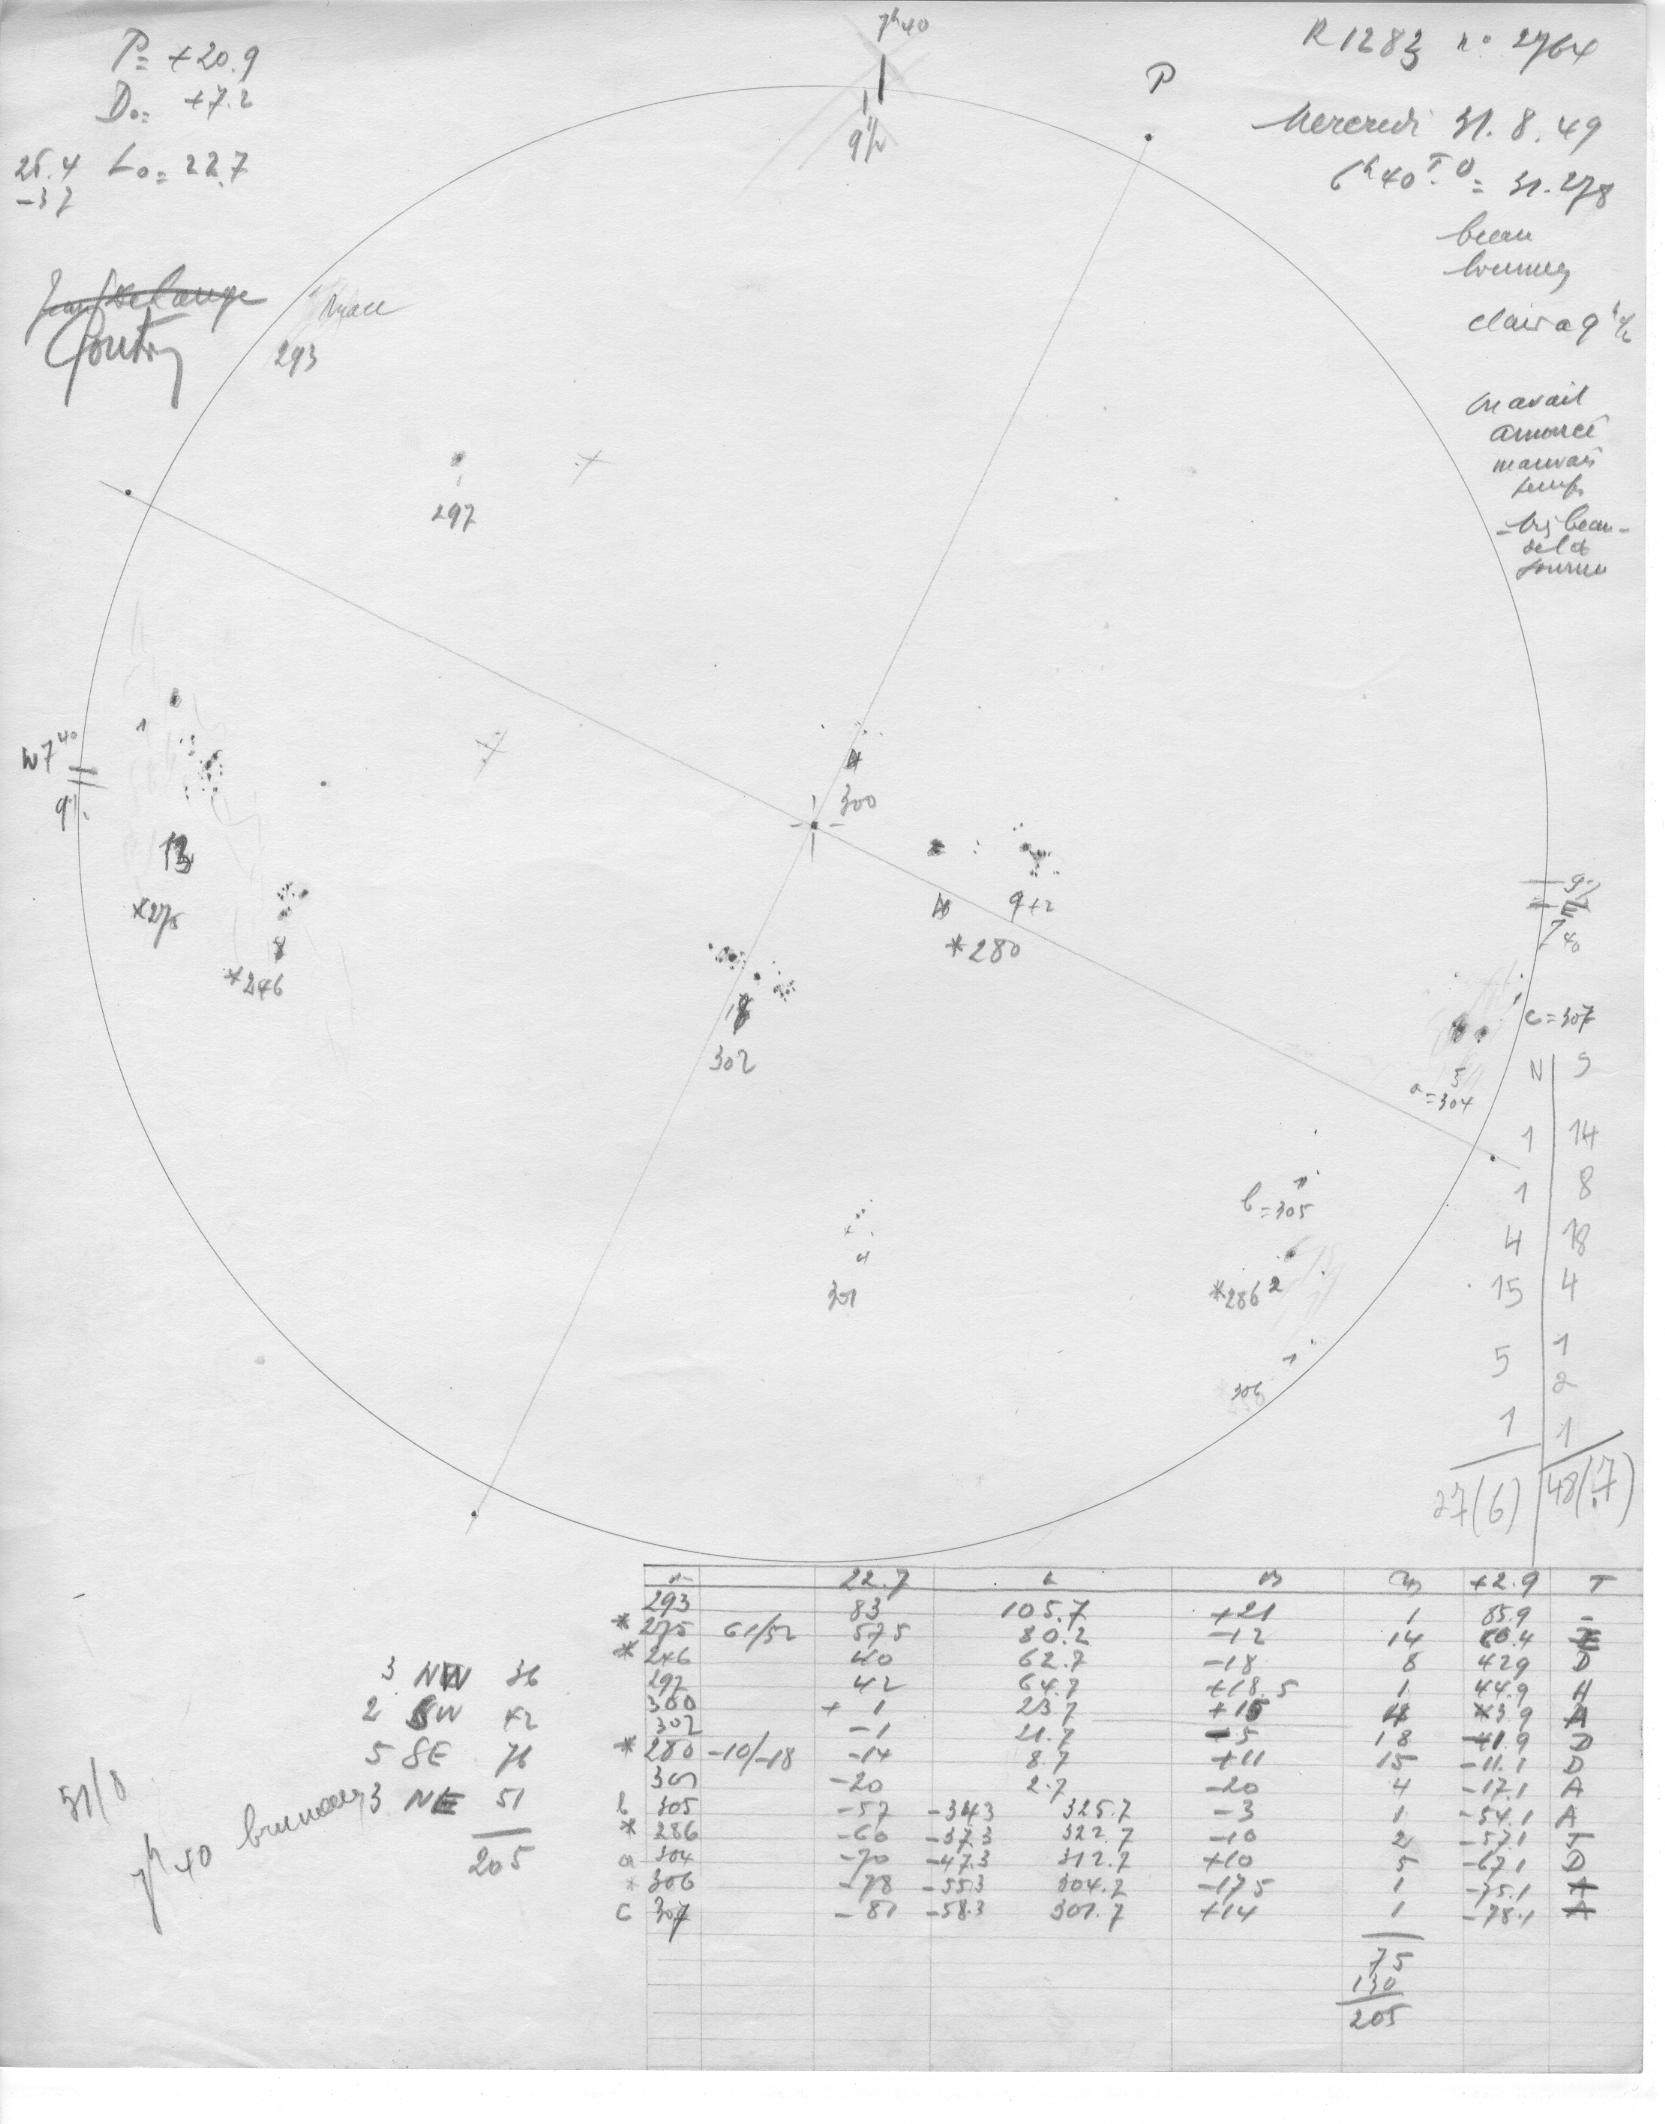 7h40
P= +20.9
D₀= +7.2
25.4 L₀= 22.7
-37
9½
P
R1283 n° 2764
Mercredi 31.8.49
6h40 T.U = 31.278
beau
brumeux
clair a 9h½
on avait
annoncé
mauvais
temps
- très beau -
293
297
W7 40
300
13
*275
*246
9+2
*280
9½
E
7 40
c=307
18
302
5
a=304
1
b=305
4
301
*286 2
1
306
N | S
1 | 14
1 | 8
4 | 18
15 | 4
5 | 1
2
1 | 1
27(6) | 48(7)
22.7 L B +2.9 T
293 83 105.7 +21 1 85.9 -
* 275 61/52 575 80.2 -12 14 60.4 E
* 246 40 62.7 -18 8 429 D
297 42 64.7 +18.5 1 44.9 H
300 + 1 23.7 +15 4 +3.9 A
302 -1 21.7 -5 18 +1.9 D
* 280 -10/-18 -14 8.7 +11 15 -11.1 D
301 -20 2.7 -20 4 -17.1 A
b 305 -57 -343 325.7 -3 1 -54.1 A
* 286 -60 -37.3 322.7 -10 2 -571 J
a 304 -70 -47.3 312.7 +10 5 -671 D
* 306 -78 -553 304.7 -175 1 -75.1 A
C 307 -81 -583 301.7 +14 1 -78.1 A
75
130
205
3 NW 36
2 SW 42
5 SE 76
3 NE 51
205
31/8
7h40 brumeux